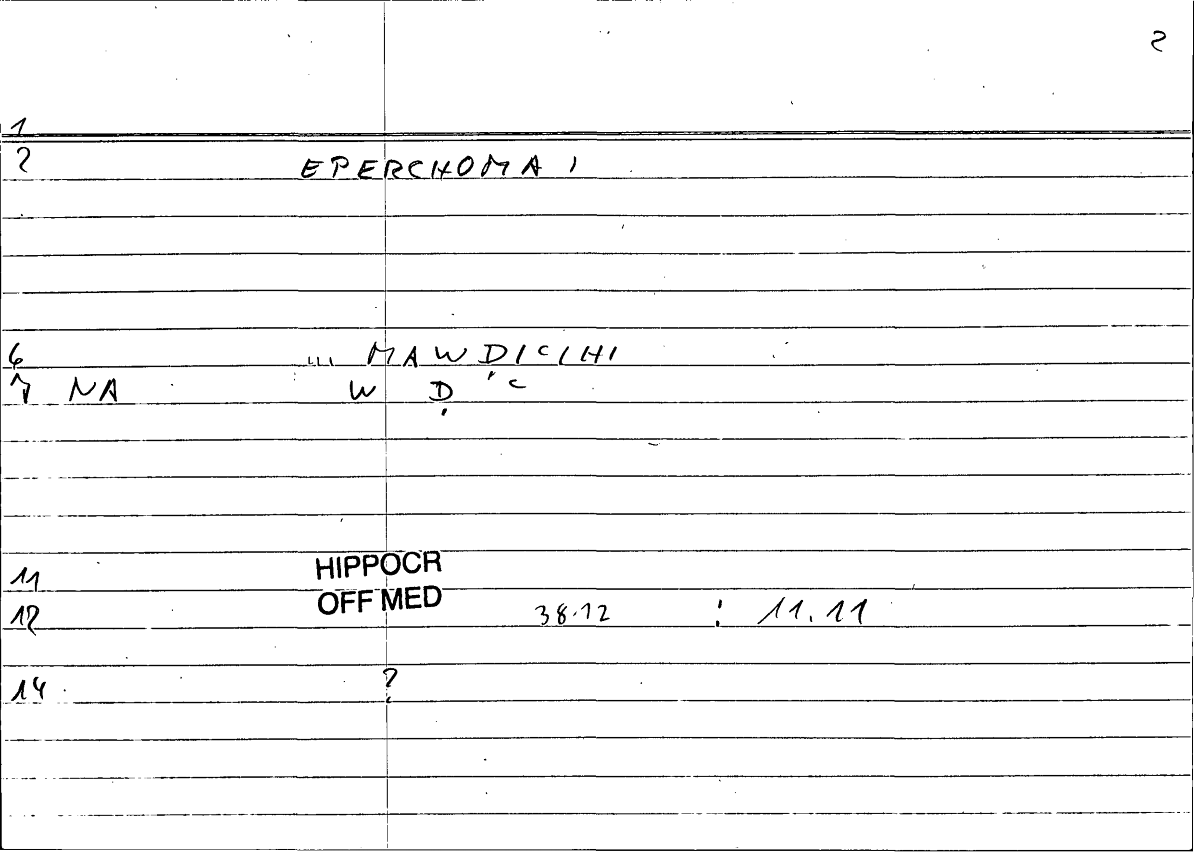 2
1
2 EPERCHOMAI
6 ... MAWDICIHI
7 NA W Ḍ 'c
11 HIPPOCR
12 OFF MED 38.12 : 11.11
14 ?